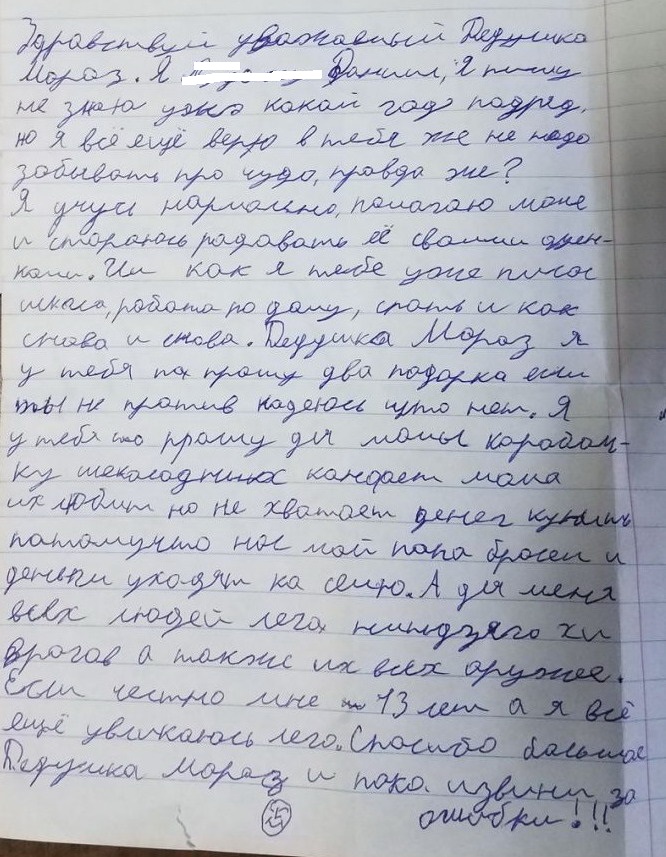 Здравствуй уважаемый Дедушка
Мораз. Я Даниил, Я пишу
не знаю уже какой год подред,
но я всё ещё верю в тебя же не надо
забывать про чудо, правда же?
Я учусь нармально, памагаю маме
и стараюсь радавать её сваими оцен-
ками. Ии как я тебе уже писал
шкала, работа по даму, спать и как
снова и снова. Дедушка Мораз я
у тебя па прашу два падарка если
ты не против надеюсь што нет. Я
у тебя по прашу для мамы карабач-
ку шекаладных канфет мама
их любит но не хватает денег купить
патамушто нас мой папа бросил и
деньги уходят на семю. А для меня
всех людей лега ниндзяго их
врагов а также их всех аружее.
Если честно мне 13 лет а я всё
ещё увликаюсь лего. Спасибо бальшое
Дедушка Мораз и пака. извини за
ошибки!!!